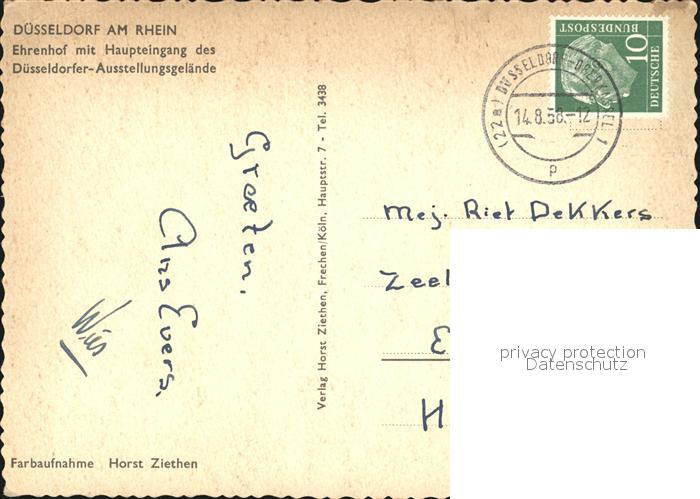 DÜSSELDORF AM RHEIN
Ehrenhof mit Haupteingang des
Düsseldorfer-Ausstellungsgelände
DEUTSCHE
BUNDESPOST
10
(22a) DÜSSELDORF
14.8.58.-12
1
p
Groeten.
Ans Evers.
Wies
Verlag Horst Ziethen, Frechen/Köln, Hauptstr. 7 - Tel. 3438
Mej. Riet DeKKers
Zeel
E
H
privacy protection
Datenschutz
Farbaufnahme Horst Ziethen